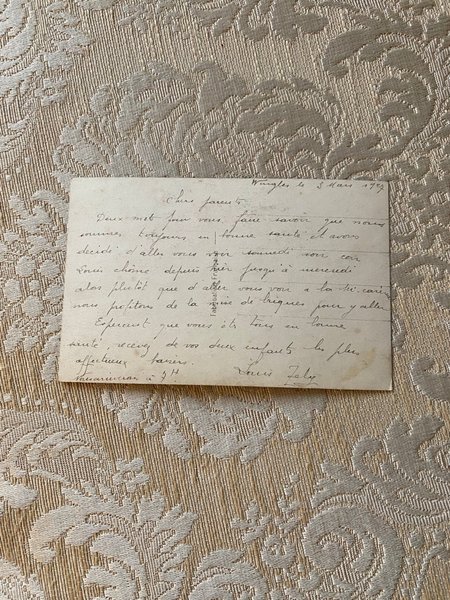 Wingles le 3 Mars 19
Chers parents
Deux mots pour vous faire savoir que nous
sommes toujours en bonne santé et avons
décidé d'aller vous voir samedi soir car
Louis chôme depuis hier jusqu'à mercredi
alors plutôt que d'aller vous voir a la
nous profitons de la de briques pour y aller
Espérant que vous êts tous en bonne
santé, recevez de vos deux enfants les plus
affectueux baisers.
à 9H Louis
Fabrication Française